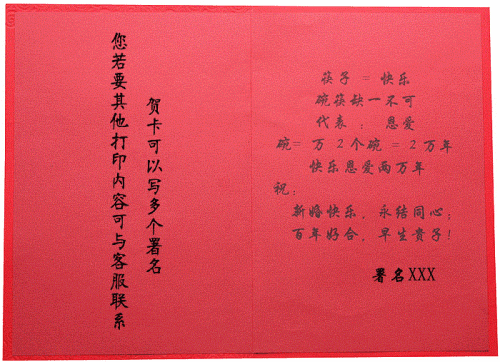 您若要其他打印内容可与客服联系
贺卡可以写多个署名
筷子 = 快乐
碗筷缺一不可
代表：恩爱
碗= 万 2个碗 = 2万年
快乐恩爱两万年
祝：
新婚快乐，永结同心；
百年好合，早生贵子！
署名XXX